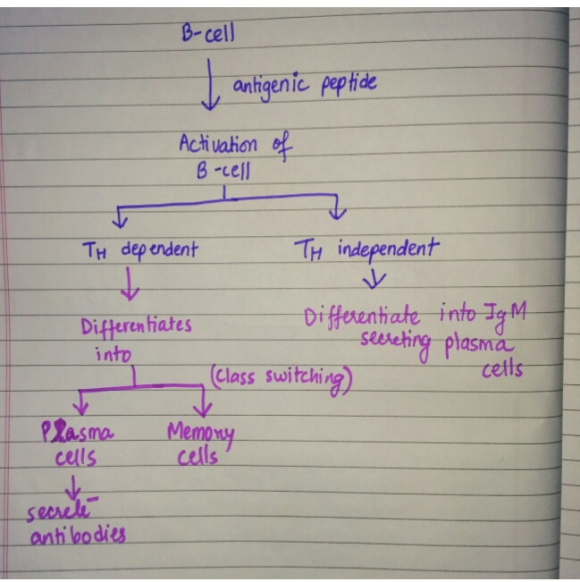 B-cell
antigenic peptide
Activation of
B-cell
TH dependent
TH independent
Differentiates
into
Differentiate into IgM
secreting plasma
cells
(Class switching)
Plasma
cells
Memory
cells
secrete
antibodies